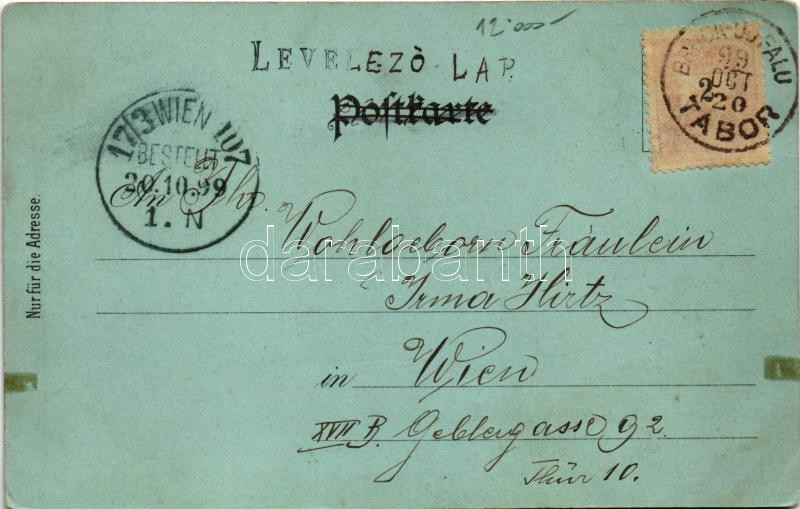 12'000
LEVELEZŐ LAP
Postkarte
99
OCT
20
TÁBOR
17/3 WIEN 107
BESTELLT
20.10.99
1. N
Nur für die Adresse.
An Ihr.
Wohlgeborn Fräulein
darabanth
Irma Hirtz
in Wien
XVII B. Geblergasse 92.
Thür 10.